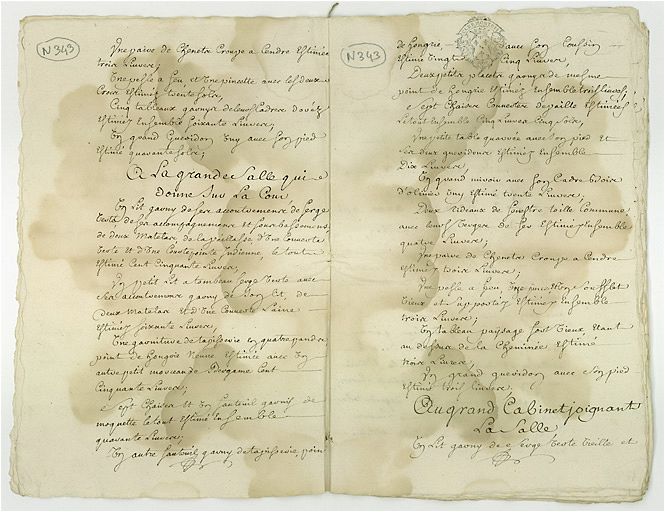 N 343
Une paire de Chenetz Croupe a Cendre Estimée
trois Livres;
Une pelle a feu et Une pincette avec les deux
Crocs Estimés vente solz;
Cinq tableaux garnys de leurs Cadres dorés
Estimés Ensemble soixante Livres;
Un grand Gueridon Uny avec son pied
Estimé quarante solz;
A La grande Salle qui
donne sur La Cour
Un Lit garny de ses accoutremens de serge
Verte, de ses accompagnemens et
de deux Matelas de Une Couverte
Verte et d'Une Courtepointe Indienne, le tout
Estimé Cent Cinquante Livres;
Un petit Lit a tombeau serge Verte avec
ses accoutremens garny de son Lit, de
deux Matelas et d'Une Couverte Laine
Estimés soixante Livres;
Une garniture de tapisserie, en quatre pandre
point de hongrie Neuve Estimée avec Un
autre petit morceau de Bergame Cent
Cinquante Livres;
Sept Chaises et Un fauteuil garnis de
moquette le tout Estimé Ensemble
quarante Livres;
Un autre fauteuil garny de tapisserie, point
N 343
de hongrie, avec son Coussin
Estimé Vingt Cinq Livres;
Deux petits placets garnys de mesme
point de hongrie Estimés Ensemble trois Livres;
Sept Chaises de paille Estimées
Le tout Ensemble Cinq Livres Cinq solz;
Une petite table quarrée avec son pied et
ses deux gueridons Estimés Ensemble
Dix Livres;
Un grand miroir avec son Cadre Et
d'olivier Uny Estimé trente Livres;
Deux Rideaux de fenestre toille Commune
avec leurs Verges de fer Estimés Ensemble
quatre Livres;
Une paire de Chenetz Croupe a Cendre
Estimés trois Livres;
Une pelle a feu, Une pincette Un soufflet
Vieux et Estimés Ensemble
trois Livres;
Un tableau paysage fort Vieux Etant
au dessus de la Cheminée Estimé
trois Livres;
Un grand gueridon avec son pied
Estimé trois Livres;
Au grand Cabinet joignant
La Salle
Un Lit garny de serge Verte Vieille et